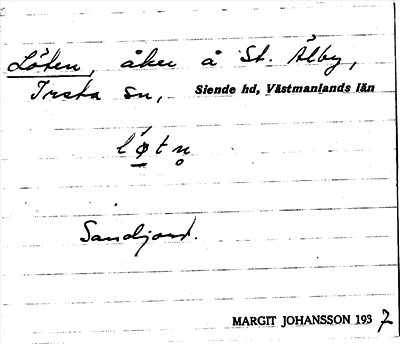 Löten, åker å St. Ålby,
Irsta sn, Siende hd, Västmanlands län
l ø t n̥
Sandjord.
MARGIT JOHANSSON 1937